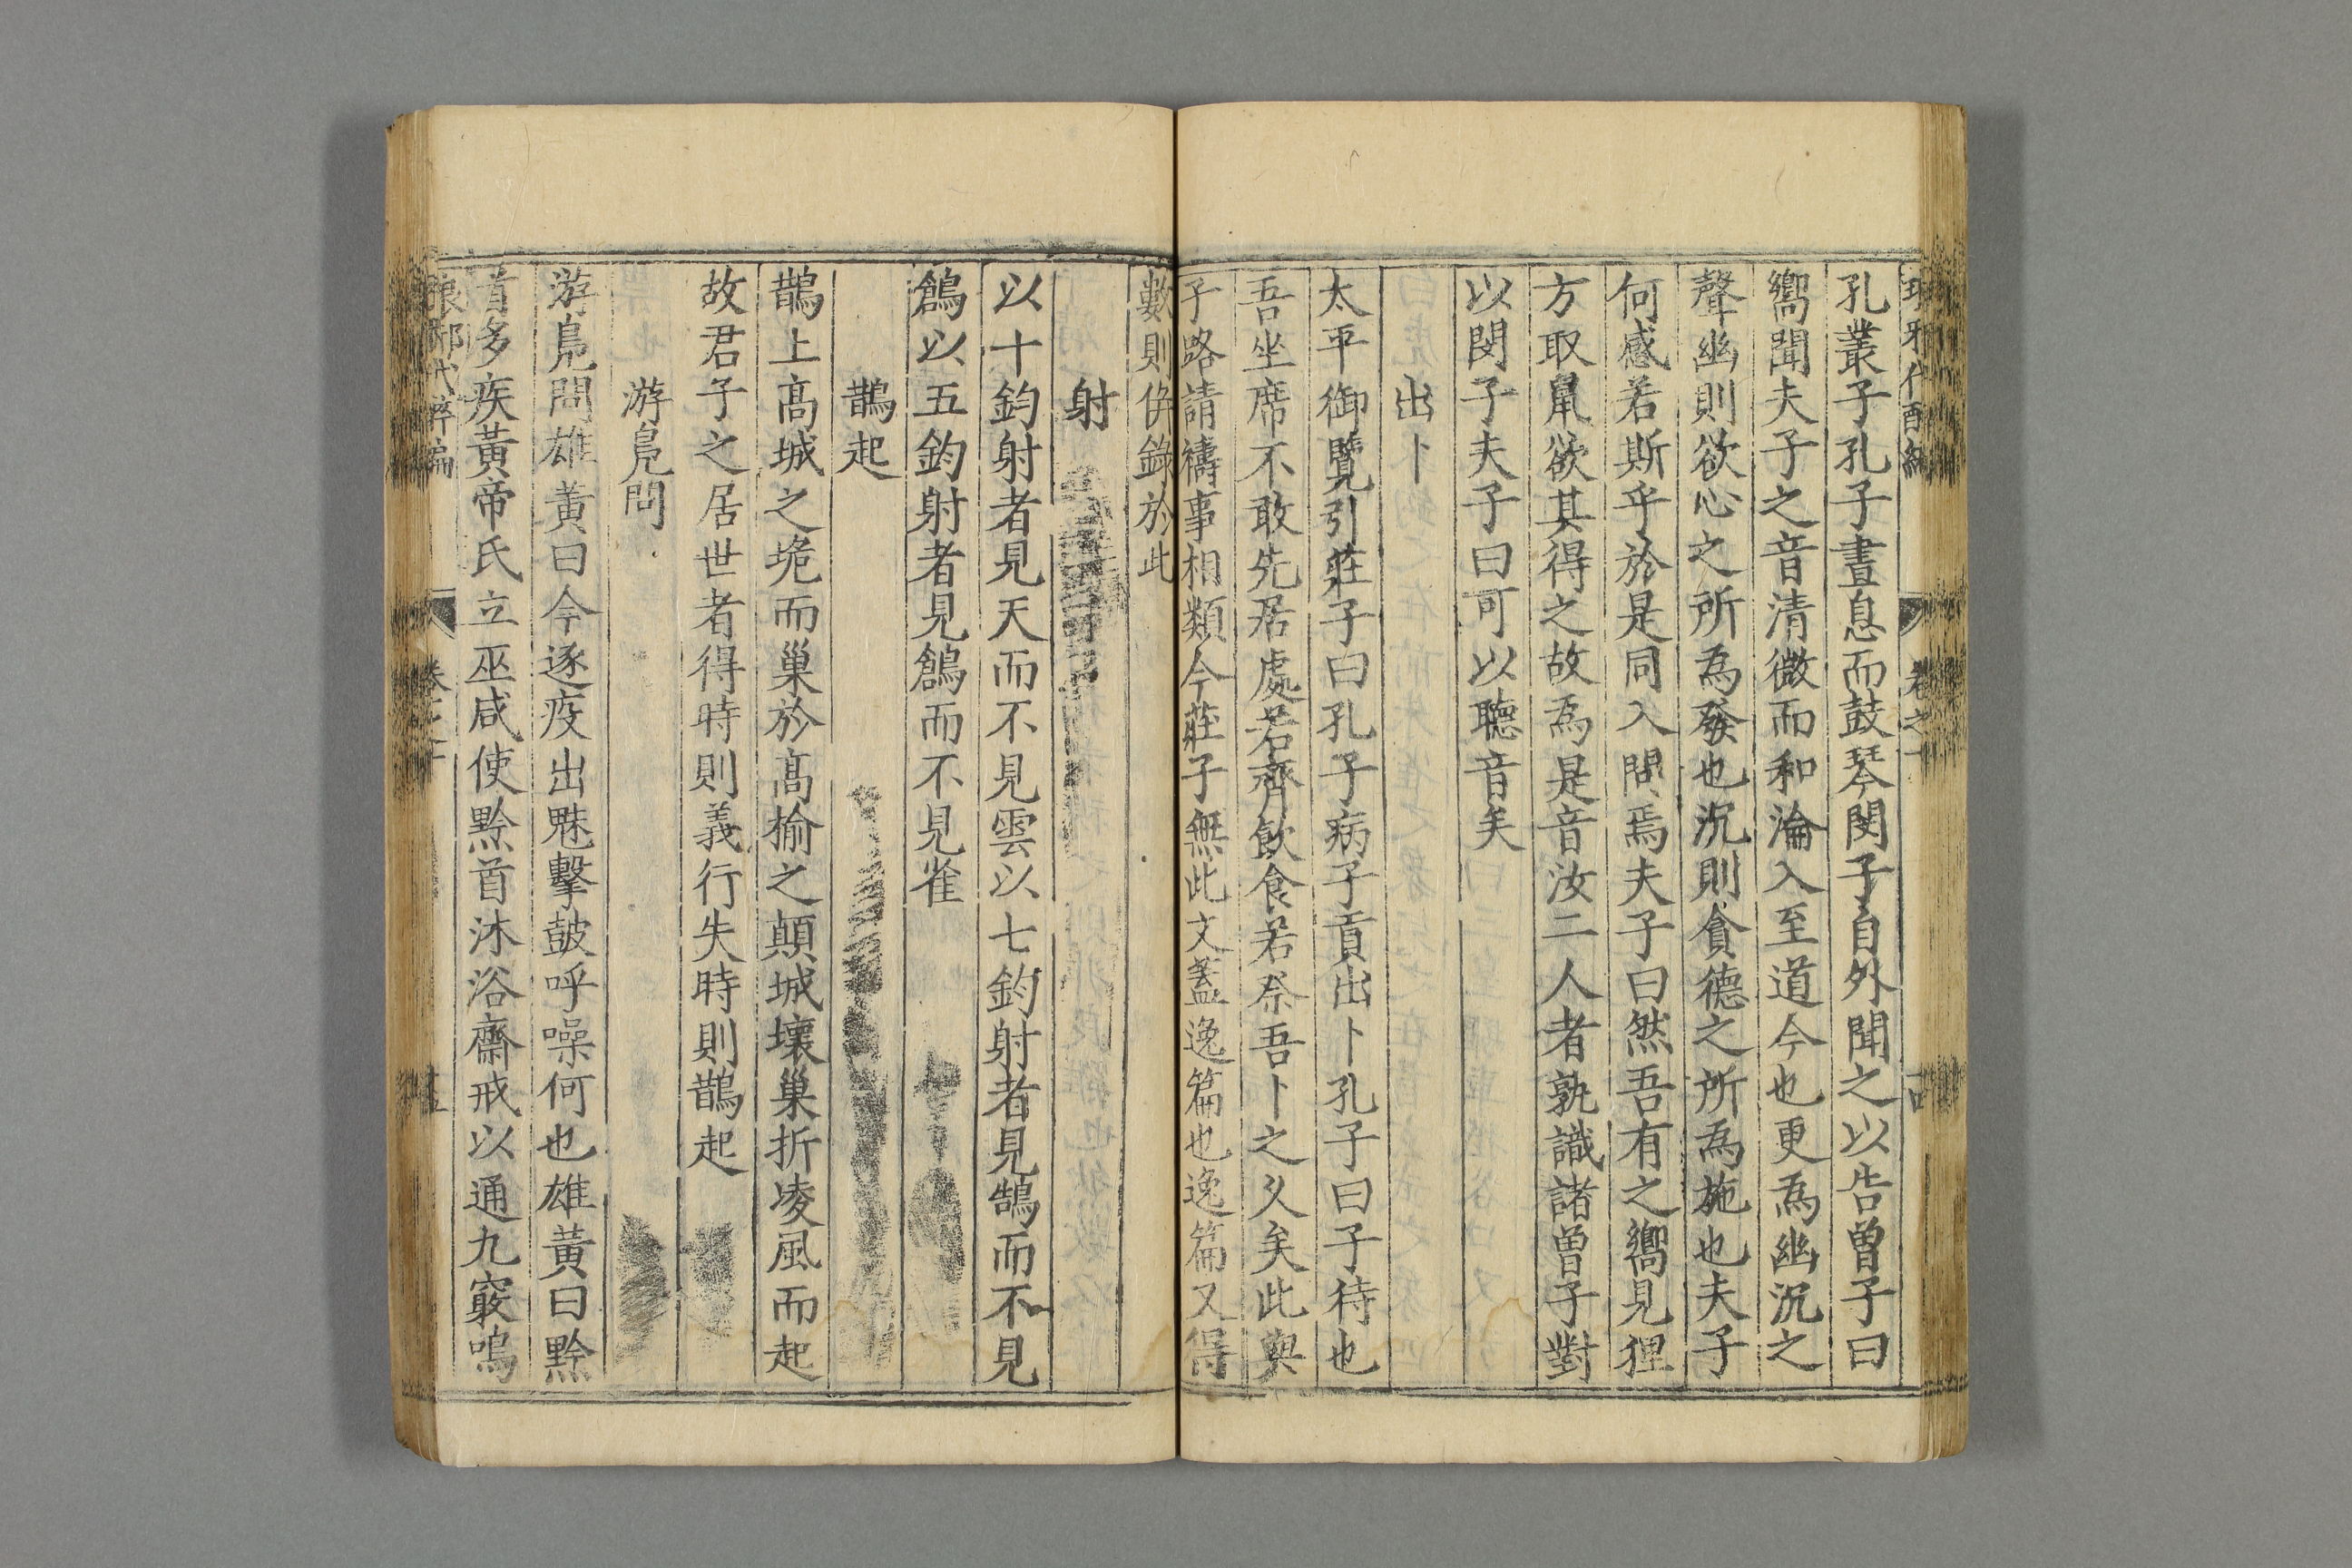 孔叢子孔子晝息而鼓琴閔子自外聞之以告曾子曰
嚮聞夫子之音清微而和淪入至道今也更爲幽沉之
聲幽則欲心之所爲發也沉則貪德之所爲施也夫子
何感若斯乎於是同入問焉夫子曰然吾有之嚮見狸
方取鼠欲其得之故爲是音汝二人者孰識諸曾子對
以閔子夫子曰可以聽音矣
出卜
太平御覽引莊子曰孔子病子貢出卜孔子曰子待也
吾坐席不敢先居處若齊飲食若祭吾卜之久矣此與
子路請禱事相類今莊子無此文蓋逸篇也逸篇又得
數則倂錄於此
射
以十鈞射者見天而不見雲以七鈞射者見鵠而不見
鶬以五鈞射者見鶬而不見雀
鵲起
鵲上高城之垝而巢於高榆之顛城壞巢折凌風而起
故君子之居世者得時則義行失時則鵲起
游鳧問
游鳧問雄黃曰今逐疫出魅擊鼓呼噪何也雄黃曰黔
首多疾黃帝氏立巫咸使黔首沐浴齋戒以通九竅鳴
琅邪代醉編